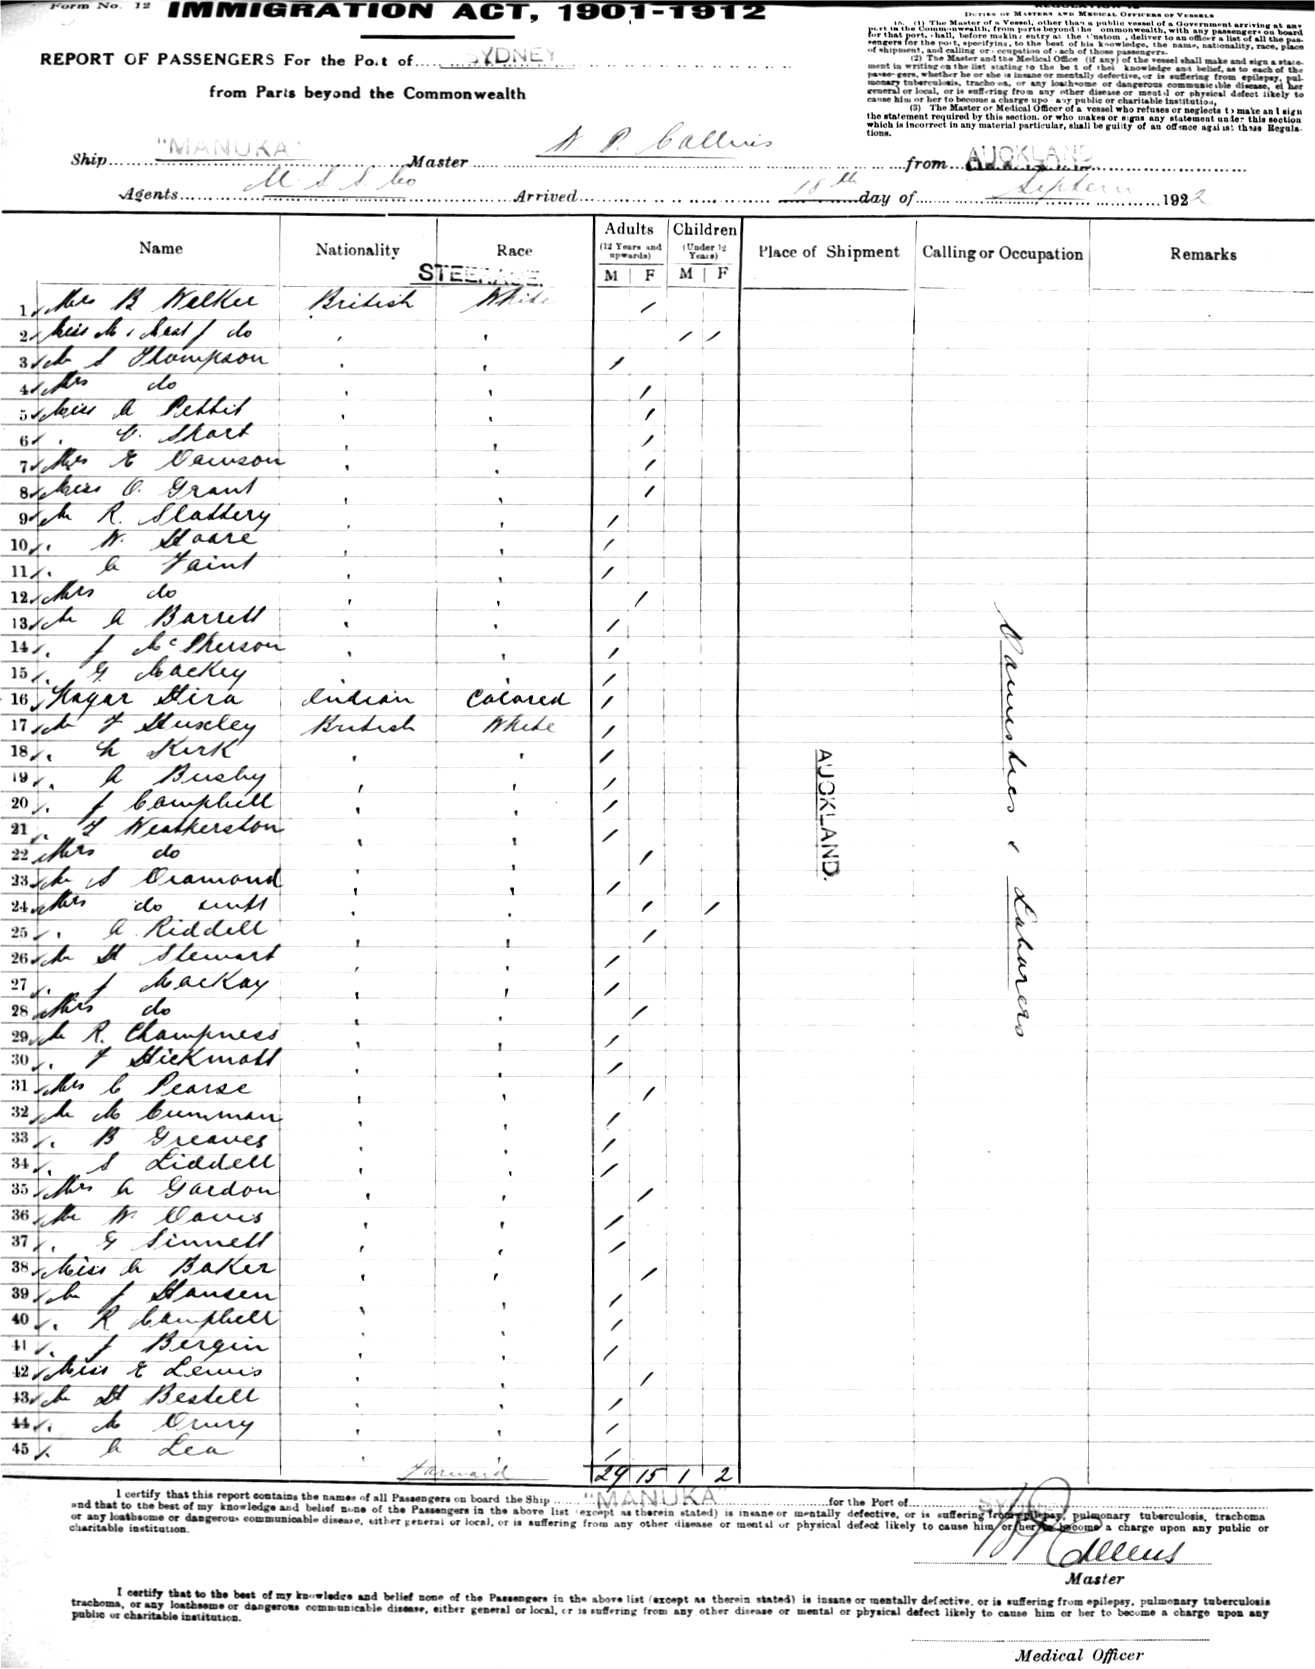 Form No. 12
IMMIGRATION ACT, 1901-1912
REPORT OF PASSENGERS For the Port of SYDNEY
from Parts beyond the Commonwealth
DUTIES OF MASTERS AND MEDICAL OFFICERS OF VESSELS
(1) The Master of a Vessel, other than a public vessel of a Government arriving at any
port in the Commonwealth, from parts beyond the Commonwealth, with any passengers on board
for that port, shall, before making entry at the Customs, deliver to an officer a list of all the pas-
sengers for the port, specifying, to the best of his knowledge, the name, nationality, race, place
of shipment, and calling or occupation of each of those passengers.
(2) The Master and the Medical Office (if any) of the vessel shall make and sign a state-
ment in writing on the list stating to the best of their knowledge and belief, as to each of the
passengers, whether he or she is insane or mentally defective, or is suffering from epilepsy, pul-
monary tuberculosis, trachoma, or any loathsome or dangerous communicable disease, either
general or local, or is suffering from any other disease or mental or physical defect likely to
cause him or her to become a charge upon any public or charitable institution,
(3) The Master or Medical Officer of a vessel who refuses or neglects to make and sign
the statement required by this section, or who makes or signs any statement under this section
which is incorrect in any material particular, shall be guilty of an offence against these Regula-
tions.
Ship "MANUKA" Master W P Collins from AUCKLAND
Agents U S S Co Arrived 18th day of Septem 1922
Name Nationality Race Adults (12 Years and upwards) M F Children (Under 12 Years) M F Place of Shipment Calling or Occupation Remarks
STEERAGE.
1 Mrs B Walker British White /
2 Miss M & Mast J do ' ' / /
3 Mr S Thompson ' ' /
4 Mrs do ' ' /
5 Miss A Pettit ' ' /
6 " C. Short ' ' /
7 Mrs E Dawson ' ' /
8 Miss O. Grant ' ' /
9 Mr R. Slattery ' ' /
10 " W. Hoare ' ' /
11 " A Faint ' ' /
12 Mrs do ' ' /
13 Mr A Barrett ' ' /
14 " J McPherson ' ' /
15 " G Mackey ' ' /
16 Nagar Hira Indian Colored /
17 Mr F Huxley British White /
18 " C Kirk ' ' /
19 " A Busby ' ' /
20 " J Campbell ' ' /
21 " F Weatherston ' ' /
22 Mrs do ' ' /
23 Mr S Dramond ' ' /
24 Mrs do inft ' ' / /
25 " A Riddell ' ' /
26 Mr H Stewart ' ' /
27 " J MacKay ' ' /
28 Mrs do ' ' /
29 Mr R. Champness ' ' /
30 " F Hickmott ' ' /
31 Mrs C Pearse ' ' /
32 Mr M Cumman ' ' /
33 " B Greaves ' ' /
34 " S Liddell ' ' /
35 Mrs A Gordon ' ' /
36 Mr W. Davis ' ' /
37 " G Sinnett ' ' /
38 Miss A Baker ' ' /
39 Mr J Hansen ' ' /
40 " R Campbell ' ' /
41 " J Bergin ' ' /
42 Miss E Lewis ' ' /
43 Mr H Bestell ' ' /
44 " M Drury ' ' /
45 " A Lea ' ' /
AUCKLAND.
Domestics & Laborers
Forward 29 15 1 2
I certify that this report contains the names of all Passengers on board the Ship "MANUKA" for the Port of SYDNEY
and that to the best of my knowledge and belief none of the Passengers in the above list (except as therein stated) is insane or mentally defective, or is suffering from epilepsy, pulmonary tuberculosis, trachoma
or any loathsome or dangerous communicable disease, either general or local, or is suffering from any other disease or mental or physical defect likely to cause him or her to become a charge upon any public or
charitable institution.
W P Collins
Master
I certify that to the best of my knowledge and belief none of the Passengers in the above list (except as therein stated) is insane or mentally defective, or is suffering from epilepsy, pulmonary tuberculosis
trachoma, or any loathsome or dangerous communicable disease, either general or local, or is suffering from any other disease or mental or physical defect likely to cause him or her to become a charge upon any
public or charitable institution.
Medical Officer